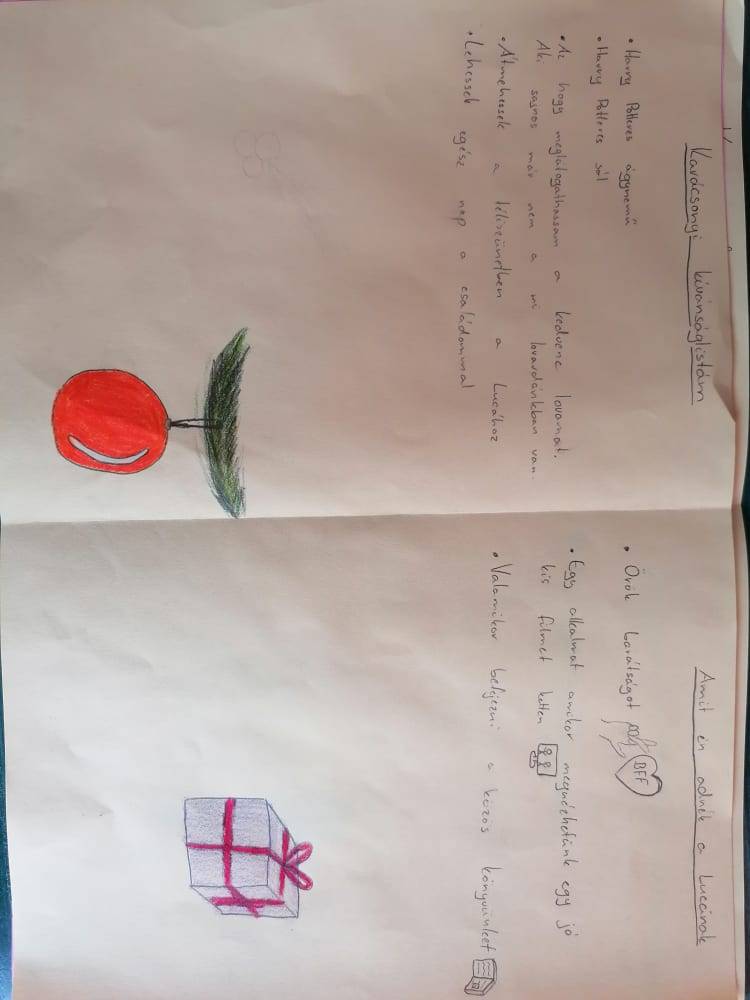 Karácsonyi kívánságlistám
• Harry Potteres ágynemű
• Harry Potteres sál
• Az hogy meglátogathassam a kedvenc lovamat.
Aki sajnos már nem a mi lovardánkban van.
• Átmehessek a téliszünetben a Lucához
• Lehessek egész nap a családommal
Amit én adnék a Lucának
• Örök barátságot
BFF
• Egy alkalmat amikor megnézhetünk egy jó
kis filmet ketten
• Valamikor befejezni a közös könyvünket